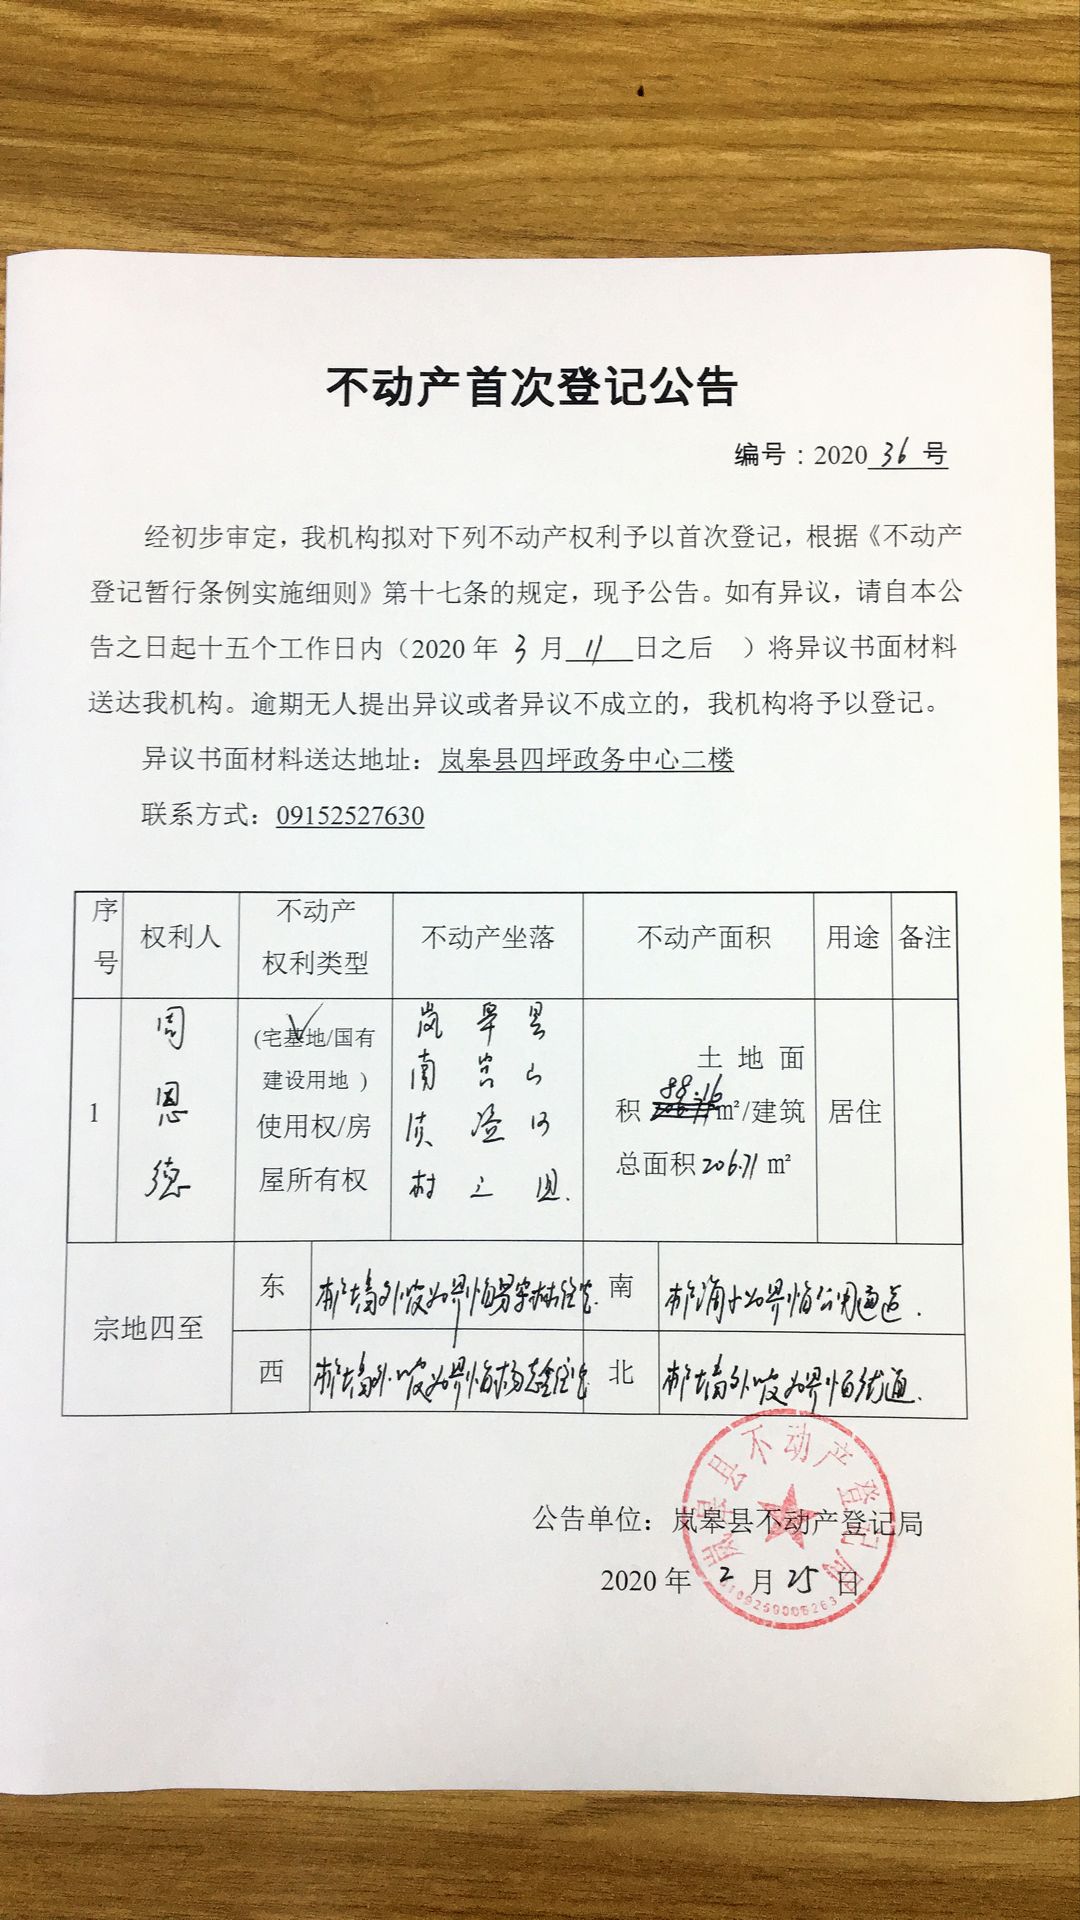 不动产首次登记公告
编号：2020 36 号
经初步审定，我机构拟对下列不动产权利予以首次登记，根据《不动产
登记暂行条例实施细则》第十七条的规定，现予公告。如有异议，请自本公
告之日起十五个工作日内（2020 年 3 月 11 日之后 ）将异议书面材料
送达我机构。逾期无人提出异议或者异议不成立的，我机构将予以登记。
异议书面材料送达地址：岚皋县四坪政务中心二楼
联系方式：09152527630
序号 权利人 不动产权利类型 不动产坐落 不动产面积 用途 备注
1
周
恩
德
(宅基地/国有
建设用地 )
使用权/房
屋所有权
岚皋县
南宫山
镇溢河
村三组.
土地面
积 88.16 m²/建筑
总面积 206.71 m²
居住
宗地四至
东 墙外坡为界
南 为界 公用通道.
西 墙外坡为界
北 墙外坡为界
公告单位：岚皋县不动产登记局
2020 年 2 月 25 日
岚皋县不动产登记局